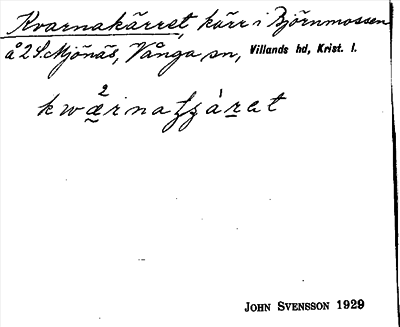 Kvarnakärret, kärr i Björnmossen
å 2 S. Mjönäs, Vånga sn, Villands hd, Krist. l.
JOHN SVENSSON 1929